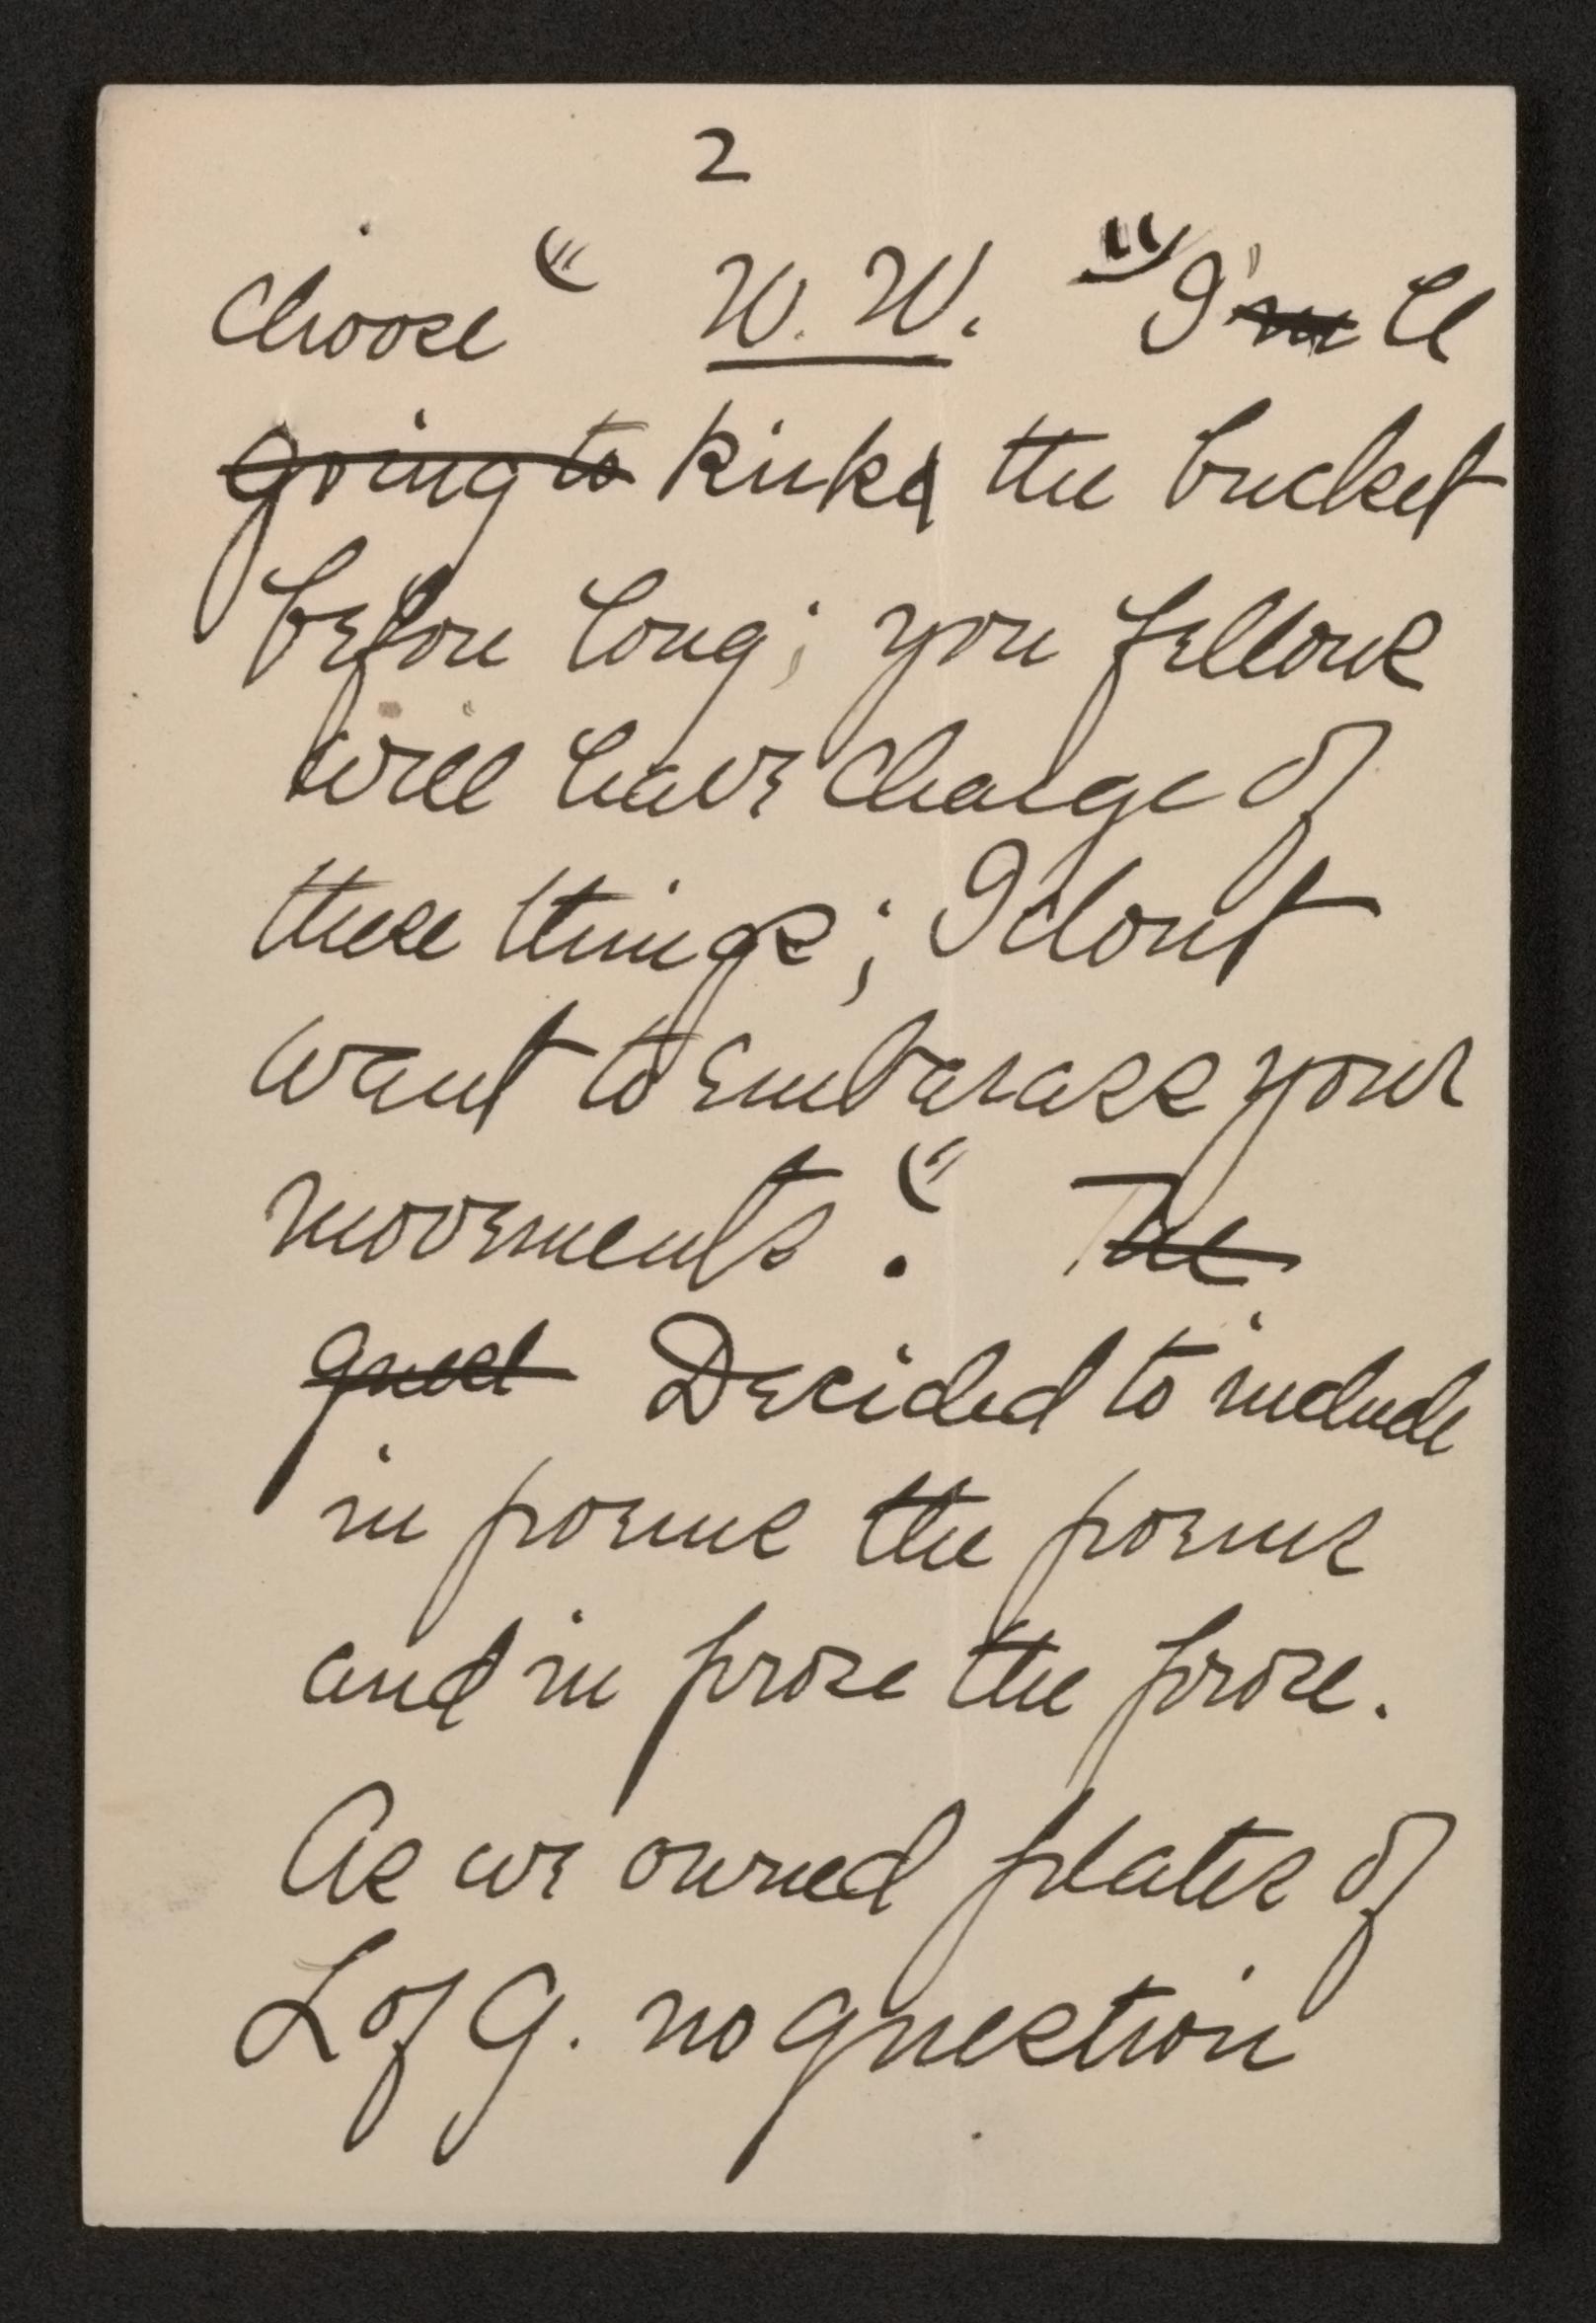 2
choose" W. W. "I'm ll
going to kick the bucket
before long; you fellows
will have charge of
these things; I dont
want to embarass your
movements". The
quest Decided to include
in poems the poems
and in prose the prose.
As we owned plates of
L of G. no question